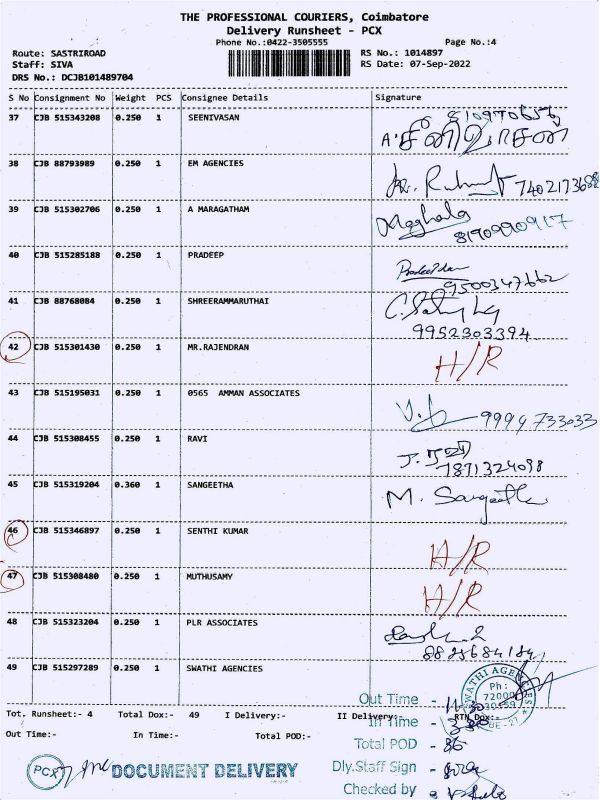 THE PROFESSIONAL COURIERS, Coimbatore
Delivery Runsheet - PCX
Phone No.:0422-3505555 Page No.:4
Route: SASTRIROAD RS No.: 1014897
Staff: SIVA RS Date: 07-Sep-2022
DRS No.: DCJB101489704
S No Consignment No Weight PCS Consignee Details Signature
37 CJB 515343208 0.250 1 SEENIVASAN
38 CJB 88793989 0.250 1 EM AGENCIES
7402173688
39 CJB 515302706 0.250 1 A MARAGATHAM
Meghala
8190990917
40 CJB 515285188 0.250 1 PRADEEP
9500347662
41 CJB 88768084 0.250 1 SHREERAMMARUTHAI
9952303394
42 CJB 515301430 0.250 1 MR.RAJENDRAN H/R
43 CJB 515195031 0.250 1 0565 AMMAN ASSOCIATES
44 CJB 515308455 0.250 1 RAVI
7871324098
45 CJB 515319204 0.360 1 SANGEETHA M. Sangeetha
46 CJB 515346897 0.250 1 SENTHI KUMAR H/R
47 CJB 515308480 0.250 1 MUTHUSAMY H/R
48 CJB 515323204 0.250 1 PLR ASSOCIATES
49 CJB 515297289 0.250 1 SWATHI AGENCIES
Tot. Runsheet:- 4 Total Dox:- 49 I Delivery:- II Delivery:- RTN Dox:-
Out Time:- In Time:- Total POD:-
Out Time -
In Time -
Total POD - 86
Dly.Staff Sign -
Checked by -
PCX DOCUMENT DELIVERY